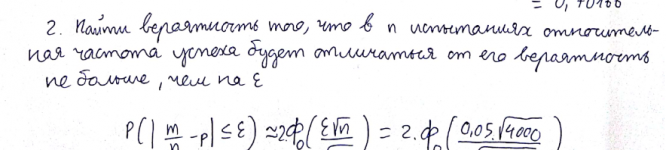 = 0,70166
2. Найти вероятность того, что в n испытаниях относитель-
ная частота успеха будет отличаться от его вероятность
не больше, чем на ε
P(|m/n - p| ≤ ε) ≈ 2Ф₀(ε√n/√) = 2·Ф₀(0,05·√4000/√)